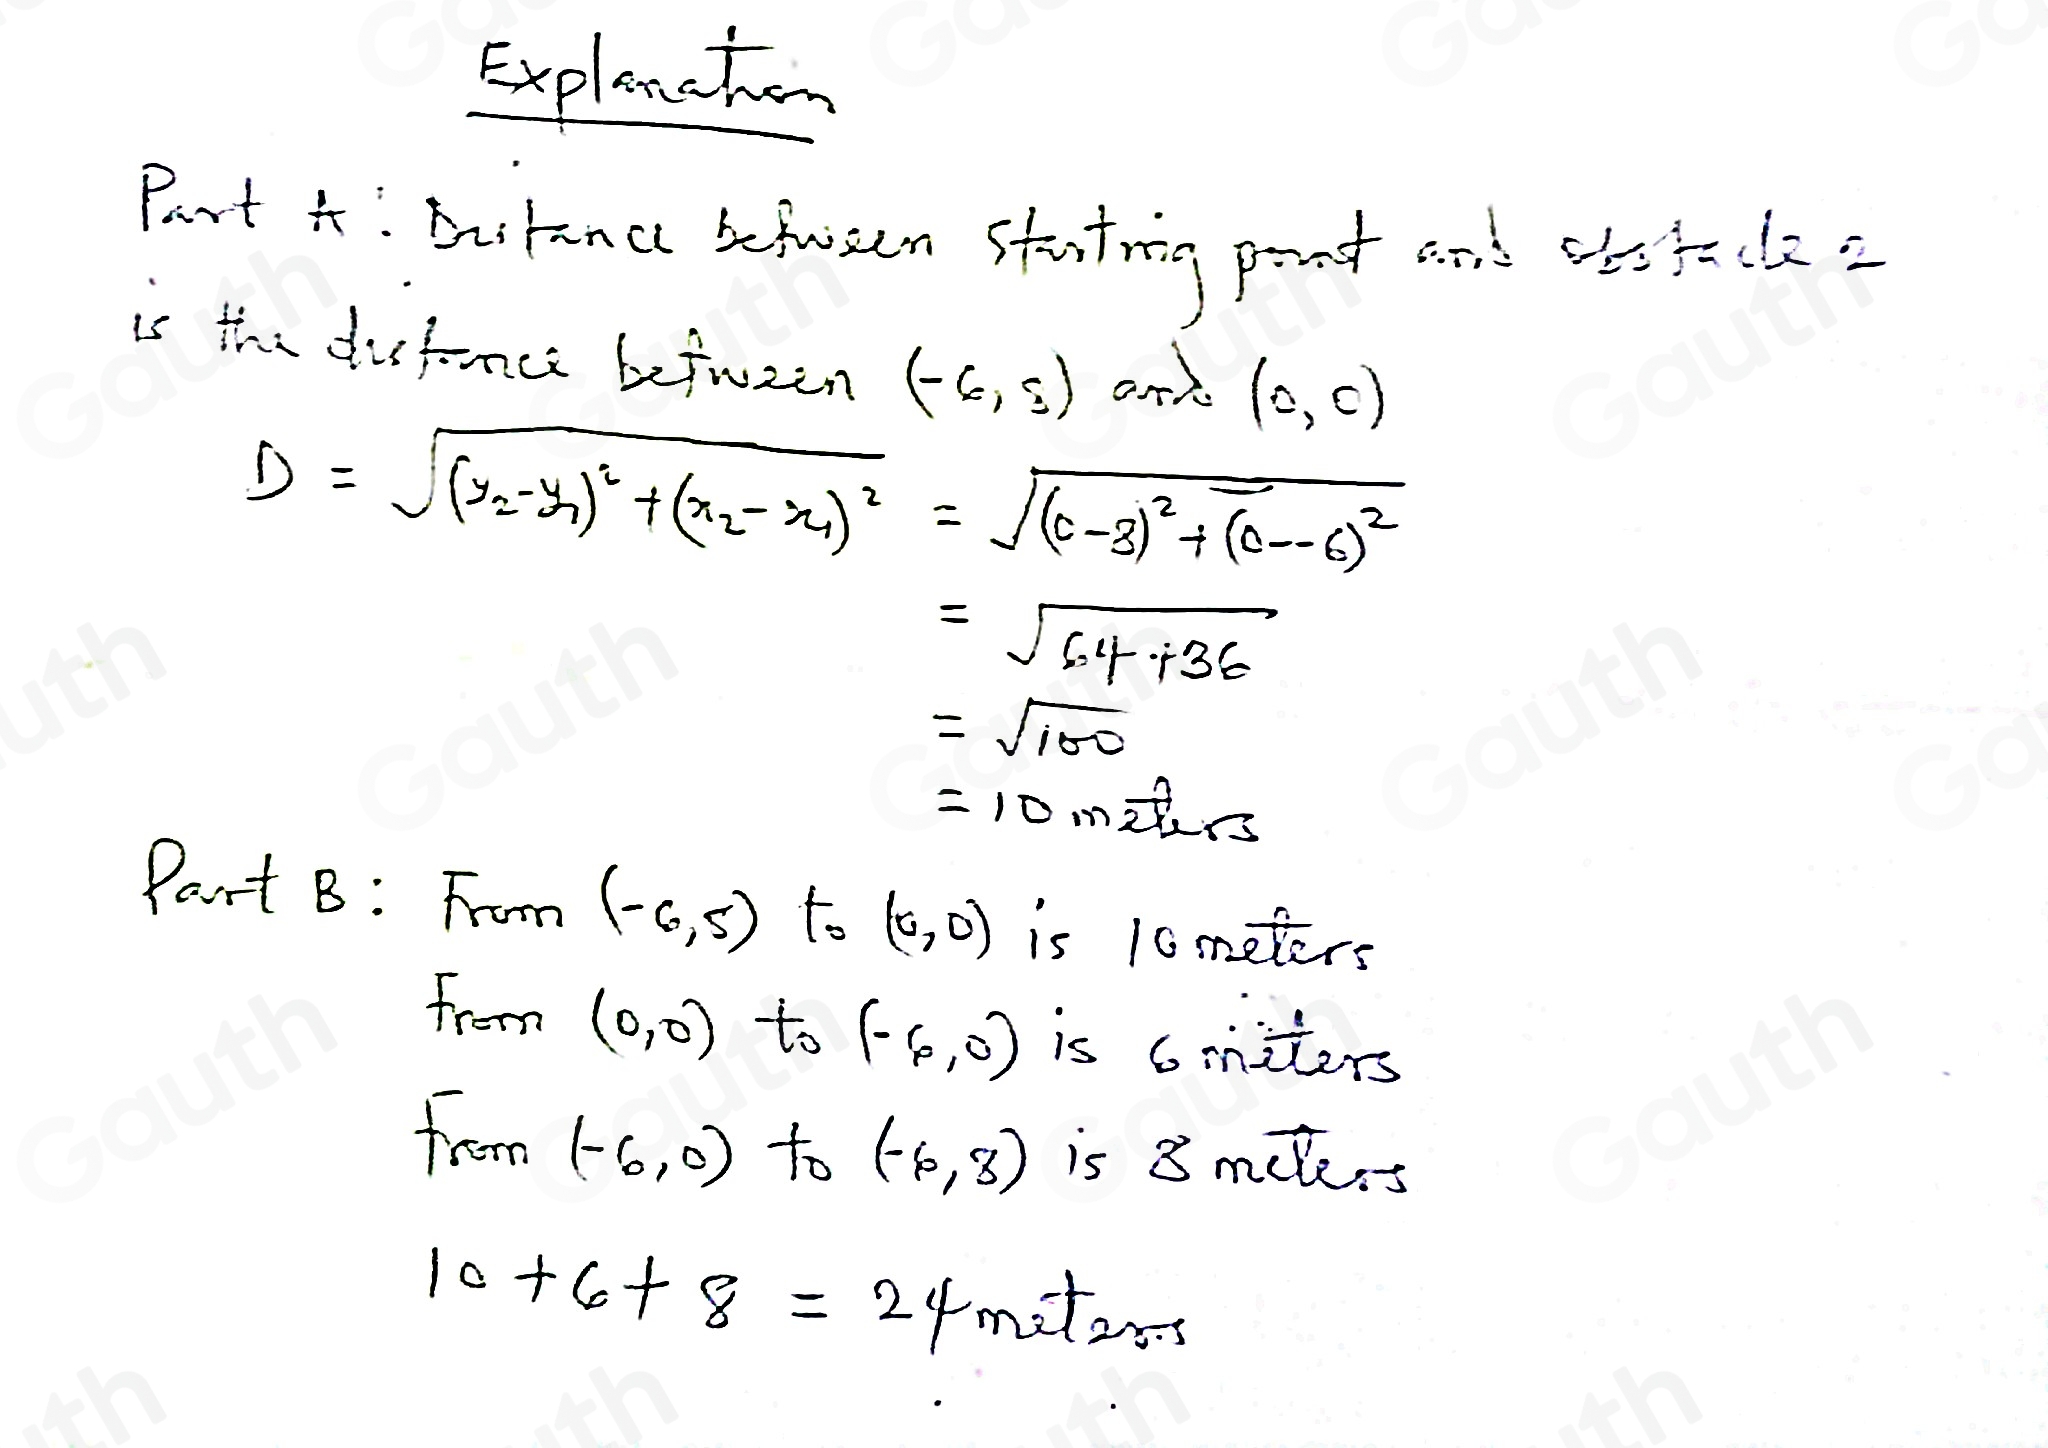 Explanation
Part A: Distance between starting point and obstacle 2
is the distance between (-6, 8) and (0, 0)
D = √((y₂-y₁)² + (x₂-x₁)²) = √((0-8)² + (0--6)²)
= √(64+36)
= √100
= 10 meters
Part B: From (-6, 5) to (0, 0) is 10 meters
From (0, 0) to (-6, 0) is 6 meters
From (-6, 0) to (-6, 8) is 8 meters
10 + 6 + 8 = 24 meters
Gauth